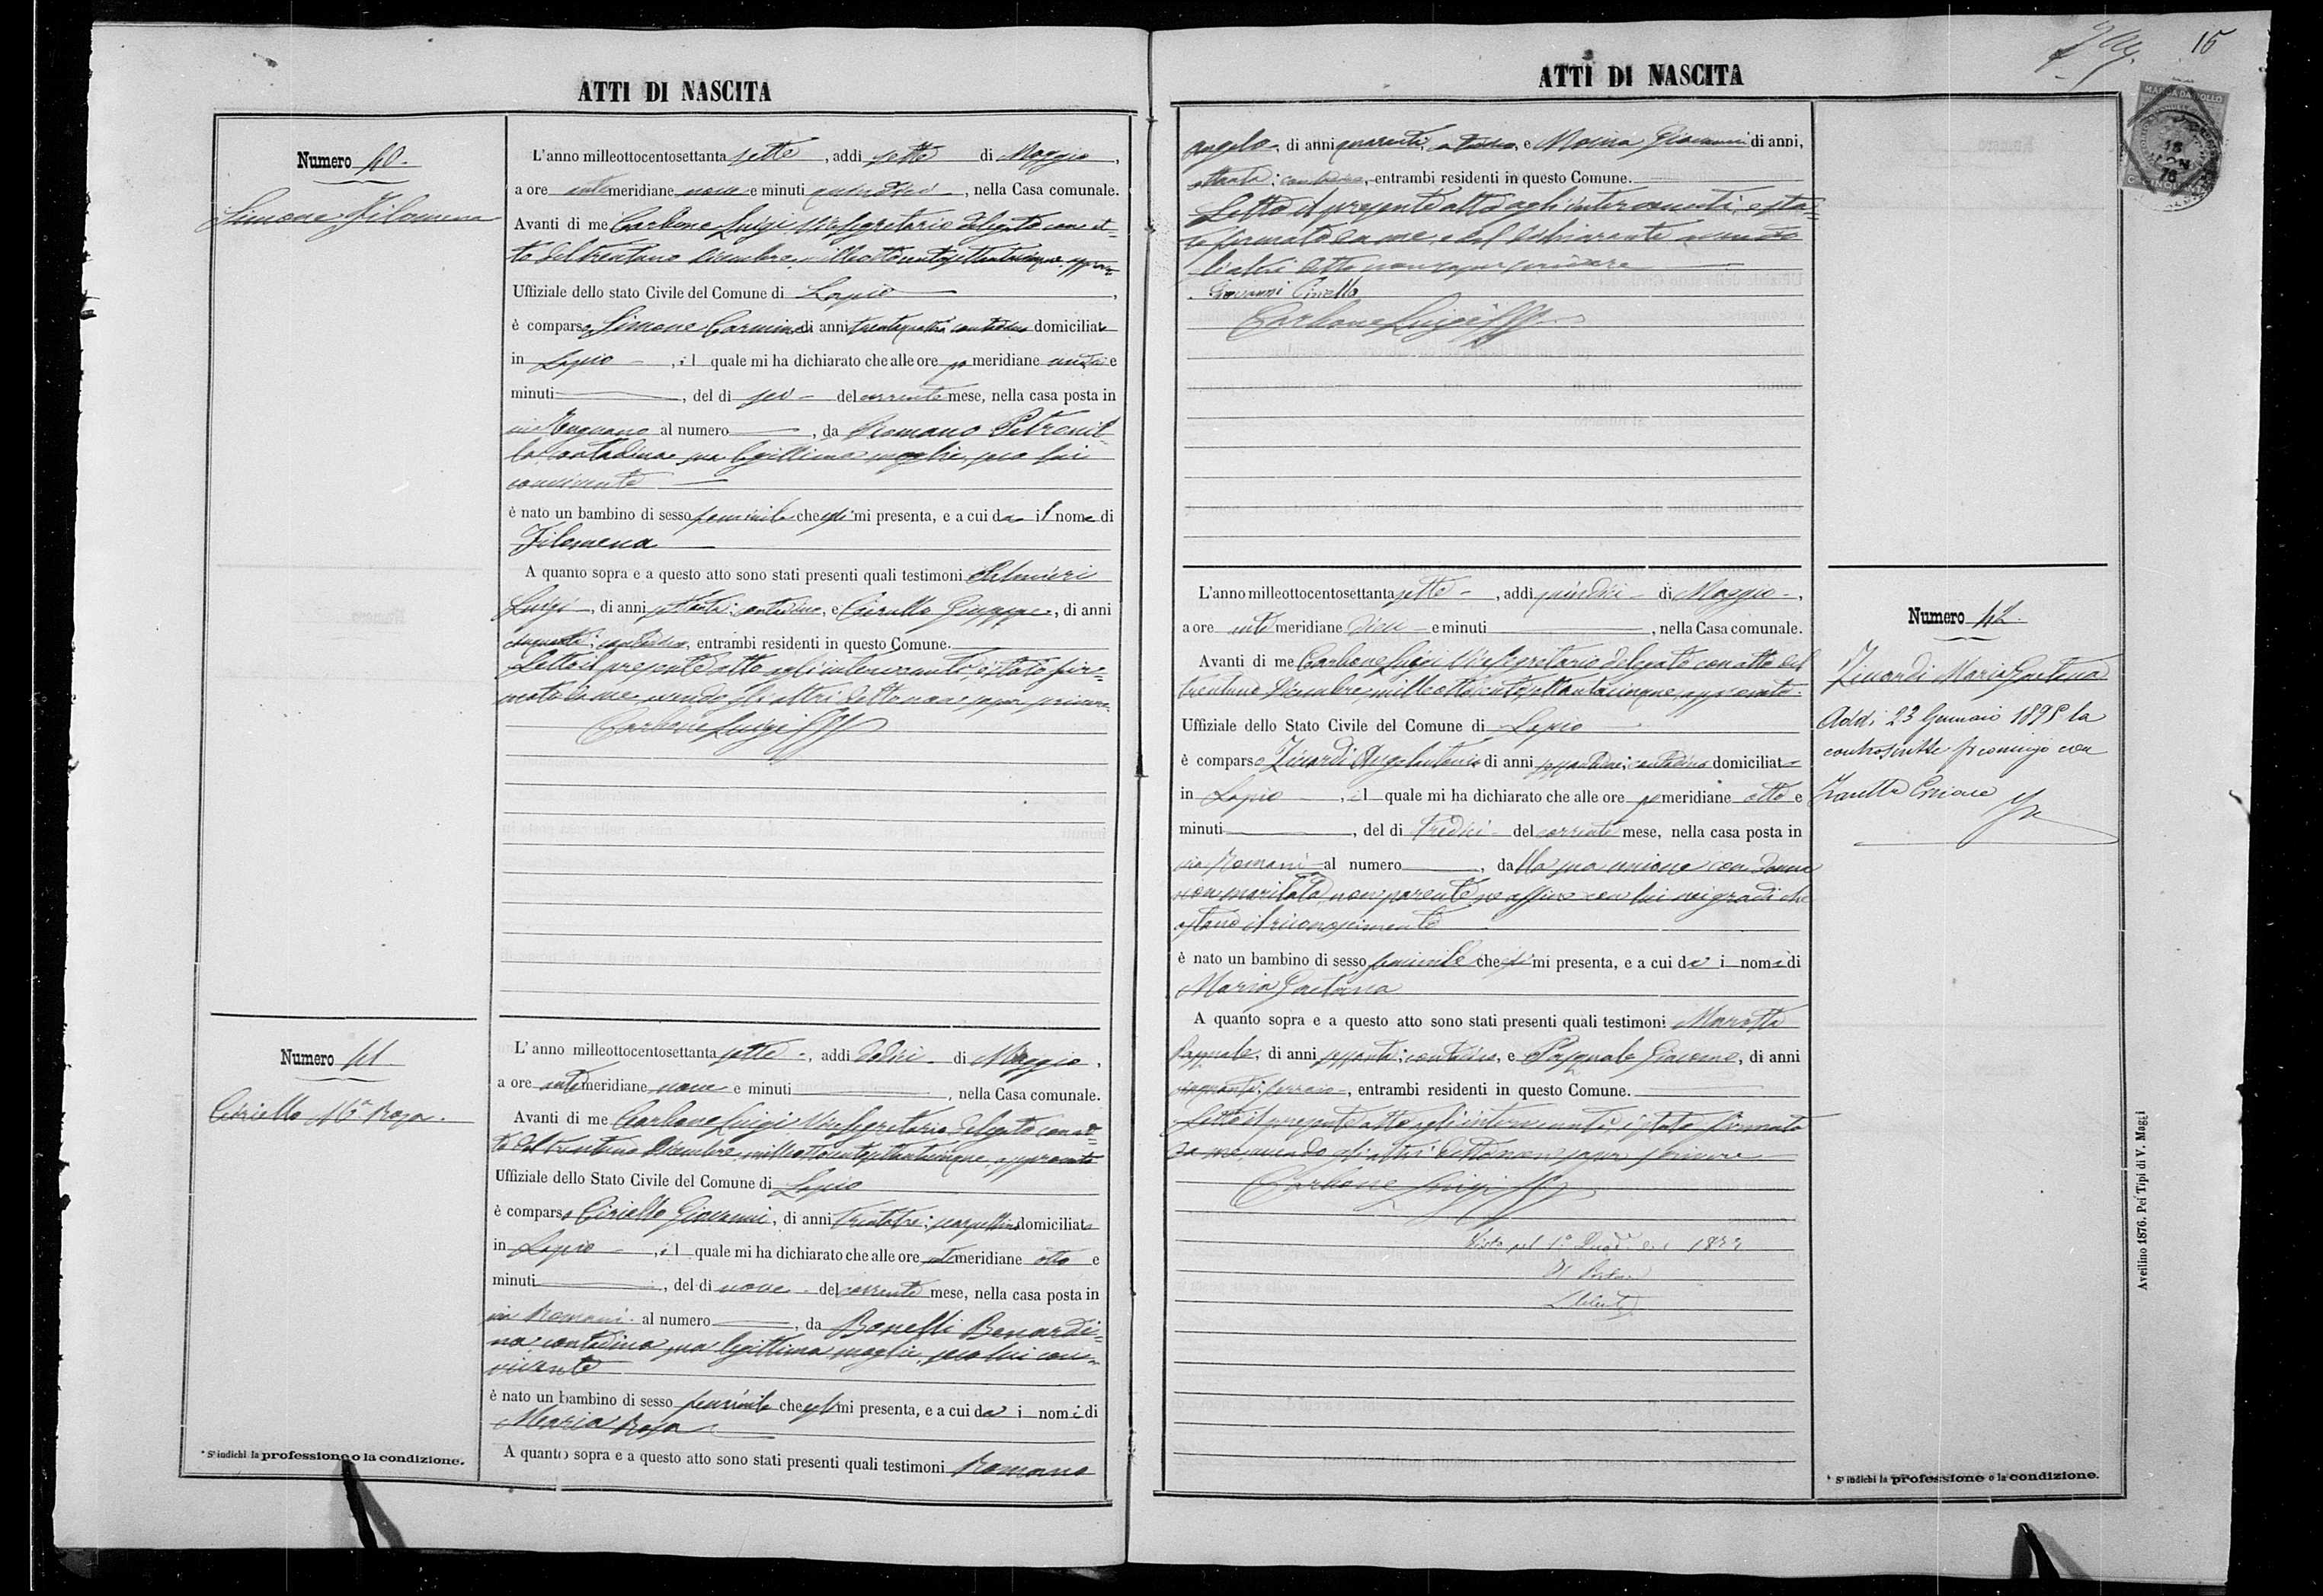 15
ATTI DI NASCITA
Numero 40.
Simone Filomena
L'anno milleottocentosettanta sette, addi sette di Maggio,
a ore antimeridiane nove e minuti quindici, nella Casa comunale.
Avanti di me Carbone Luigi Vice Segretario delegato con at=
to del trentuno Dicembre milleottocentosettantacinque appro=
Uffiziale dello stato Civile del Comune di Lapio,
è comparso Simone Carmine di anni trentaquattro contadino domiciliato
in Lapio, il quale mi ha dichiarato che alle ore pomeridiane undici e
minuti, del di sei del corrente mese, nella casa posta in
via Mugnano al numero, da Romano Petronil=
la contadina sua legittima moglie, seco lui
convivente
è nato un bambino di sesso feminile che egli mi presenta, e a cui da il nome di
Filomena
A quanto sopra e a questo atto sono stati presenti quali testimoni
Luigi, di anni settanta; contadino, e Ciriello Giuseppe, di anni
cinquanta; contadino, entrambi residenti in questo Comune.
Letto il presente atto agli intervenuti, è stato fir=
mato da me, avendo gli altri detto non saper scrivere
Carbone Luigi
Numero 41
Ciriello Ma Rosa.
L'anno milleottocentosettanta sette, addi dodici di Maggio,
a ore antimeridiane nove e minuti, nella Casa comunale.
Avanti di me Carbone Luigi Vice Segretario delegato con at=
to del trentuno Dicembre milleottocentosettantacinque, approvato
Uffiziale dello Stato Civile del Comune di Lapio
è comparso Ciriello Giovanni, di anni trentatre; scarpellino domiciliato
in Lapio, il quale mi ha dichiarato che alle ore antimeridiane otto e
minuti, del di nove del corrente mese, nella casa posta in
via Romani al numero, da Bonelli Benardi=
na contadina sua legittima moglie, seco lui con=
vivente
è nato un bambino di sesso feminile che egli mi presenta, e a cui da i nomi di
Maria Rosa
A quanto sopra e a questo atto sono stati presenti quali testimoni Romano
* Si indichi la professione o la condizione.
ATTI DI NASCITA
MARCA DA BOLLO
angelo, di anni quaranta, contadino, e Giovanni di anni,
settanta; contadino, entrambi residenti in questo Comune.
Letto il presente atto agli intervenuti, è sta=
to firmato da me, e dal dichiarante avendo
gli altri detto non saper scrivere
Giovanni Ciriello
Carbone Luigi
L'anno milleottocentosettanta sette, addi quindici di Maggio,
a ore antimeridiane dieci e minuti, nella Casa comunale.
Avanti di me Carbone Luigi Vice Segretario delegato con atto del
trentuno Dicembre milleottocentosettantacinque, approvato
Uffiziale dello Stato Civile del Comune di Lapio
è comparso Zinardi Angelantonio di anni contadino domiciliato
in Lapio, il quale mi ha dichiarato che alle ore pomeridiane otto e
minuti, del di tredici del corrente mese, nella casa posta in
via Romani al numero, dalla sua unione con donna
non maritata, non parente, ne affine con lui nei gradi che
ostano il riconoscimento
è nato un bambino di sesso feminile che mi presenta, e a cui da i nomi di
Maria Gaetana
A quanto sopra e a questo atto sono stati presenti quali testimoni Marotta
Pasquale, di anni sessanta; contadino, e Pasquale Giacomo, di anni
cinquanta; ferraio, entrambi residenti in questo Comune.
Letto il presente atto agli intervenuti, è stato firmato
da me, avendo gli altri detto non saper scrivere
Carbone Luigi
Numero 42.
Zinardi Maria Gaetana
Addi 23 Gennaio 1898 la
controscritta si coniugò con
* Si indichi la professione o la condizione.
Avellino 1876. Pei Tipi di V. Maggi